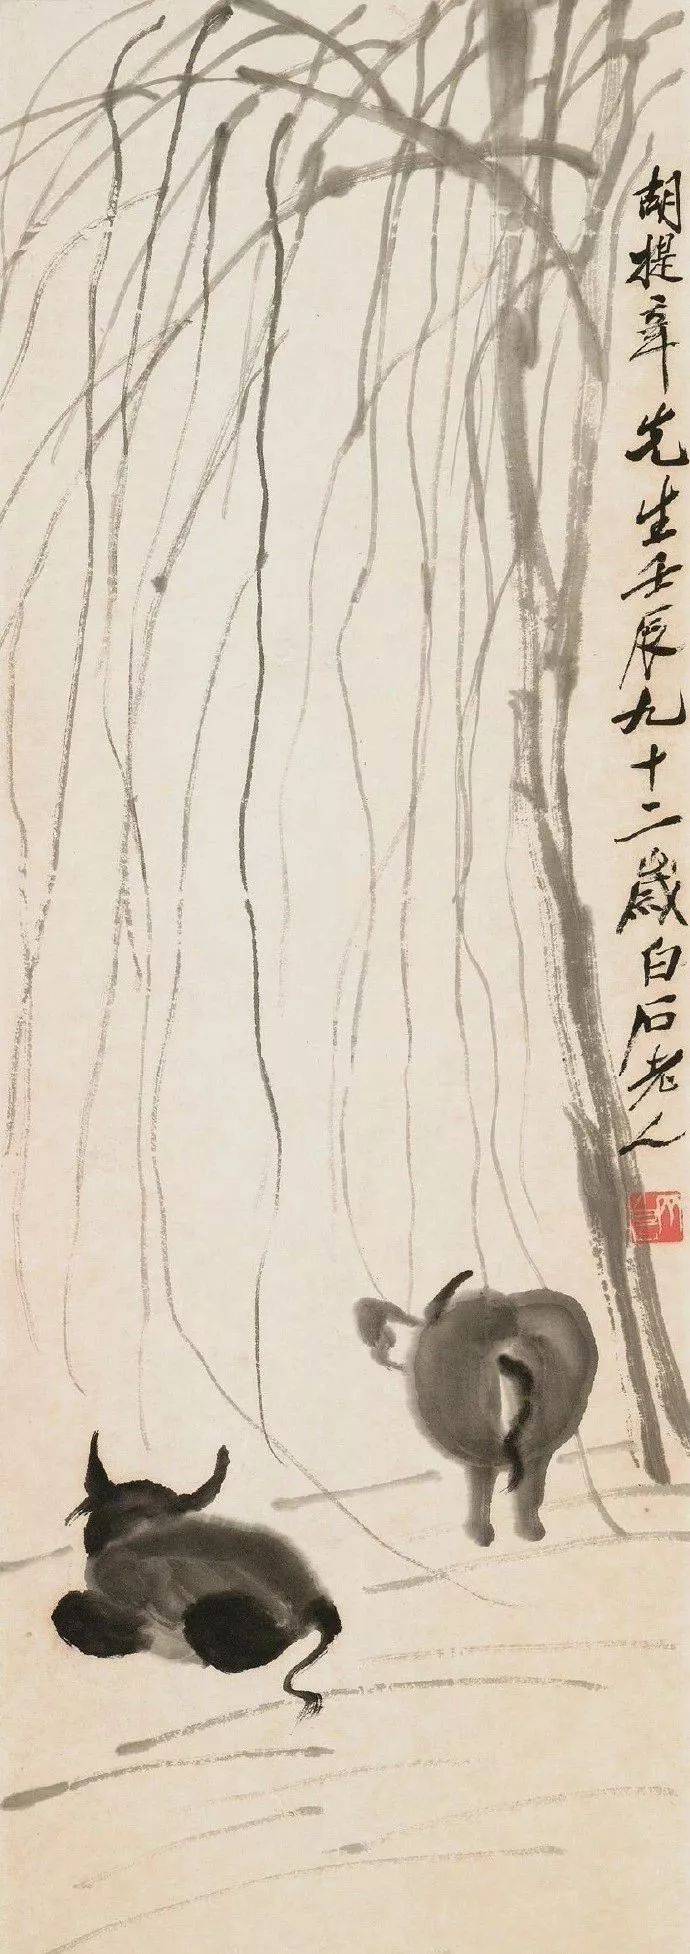 胡提章先生壬辰九十二岁白石老人